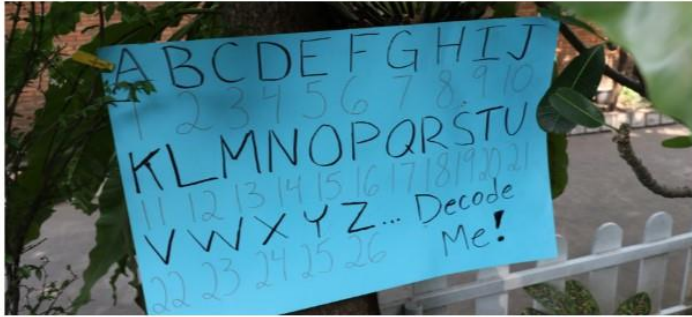 A B C D E F G H I J
1 2 3 4 5 6 7 8 9 10
K L M N O P Q R S T U
11 12 13 14 15 16 17 18 19 20 21
V W X Y Z... Decode
22 23 24 25 26 Me!